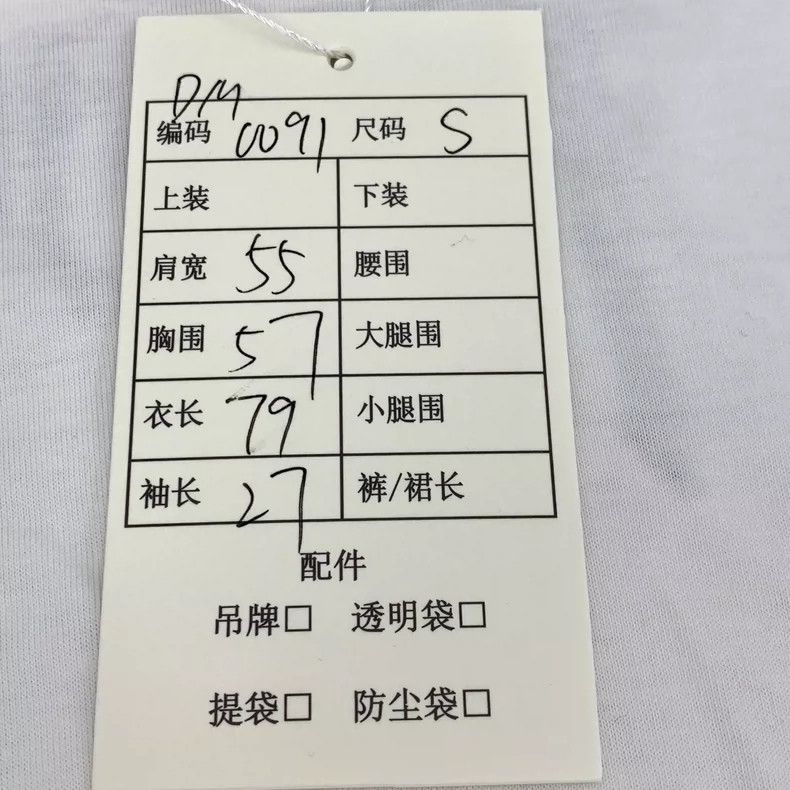 DM
编码 0091 尺码 S
上装 下装
肩宽 55 腰围
胸围 57 大腿围
衣长 79 小腿围
袖长 27 裤/裙长
配件
吊牌□ 透明袋□
提袋□ 防尘袋□